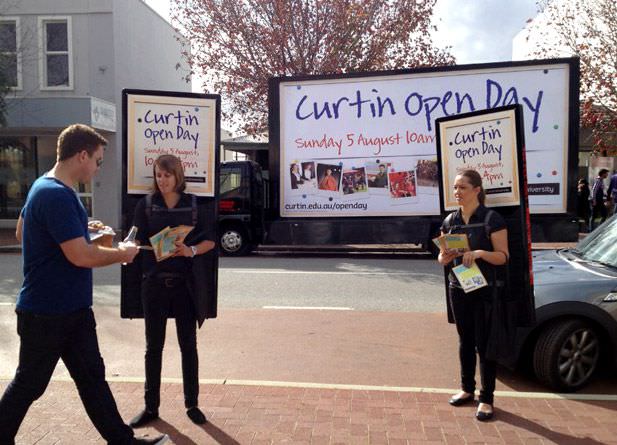 Curtin
Open Day
Sunday 5 August,
10am
4pm
Curtin Open Day
Sunday 5 August 10am
curtin.edu.au/openday
University
Curtin
Open Day
5 August,
4pm